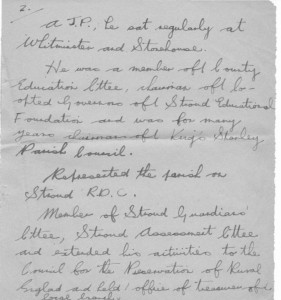 2.
A J.P., he sat regularly at
Whitminster and Stonehouse.
He was a member oft County
Education Cttee, chairman oft Co-
opted Governors oft Stroud Educational
Foundation and was for many
years chairman oft King's Stanley
Parish Council.
Represented the parish on
Stroud R.D.C.
Member of Stroud Guardians'
Cttee, Stroud Assessment Cttee
and extended his activities to the
Council for the Preservation of Rural
England and held office of treasurer oft
local branch